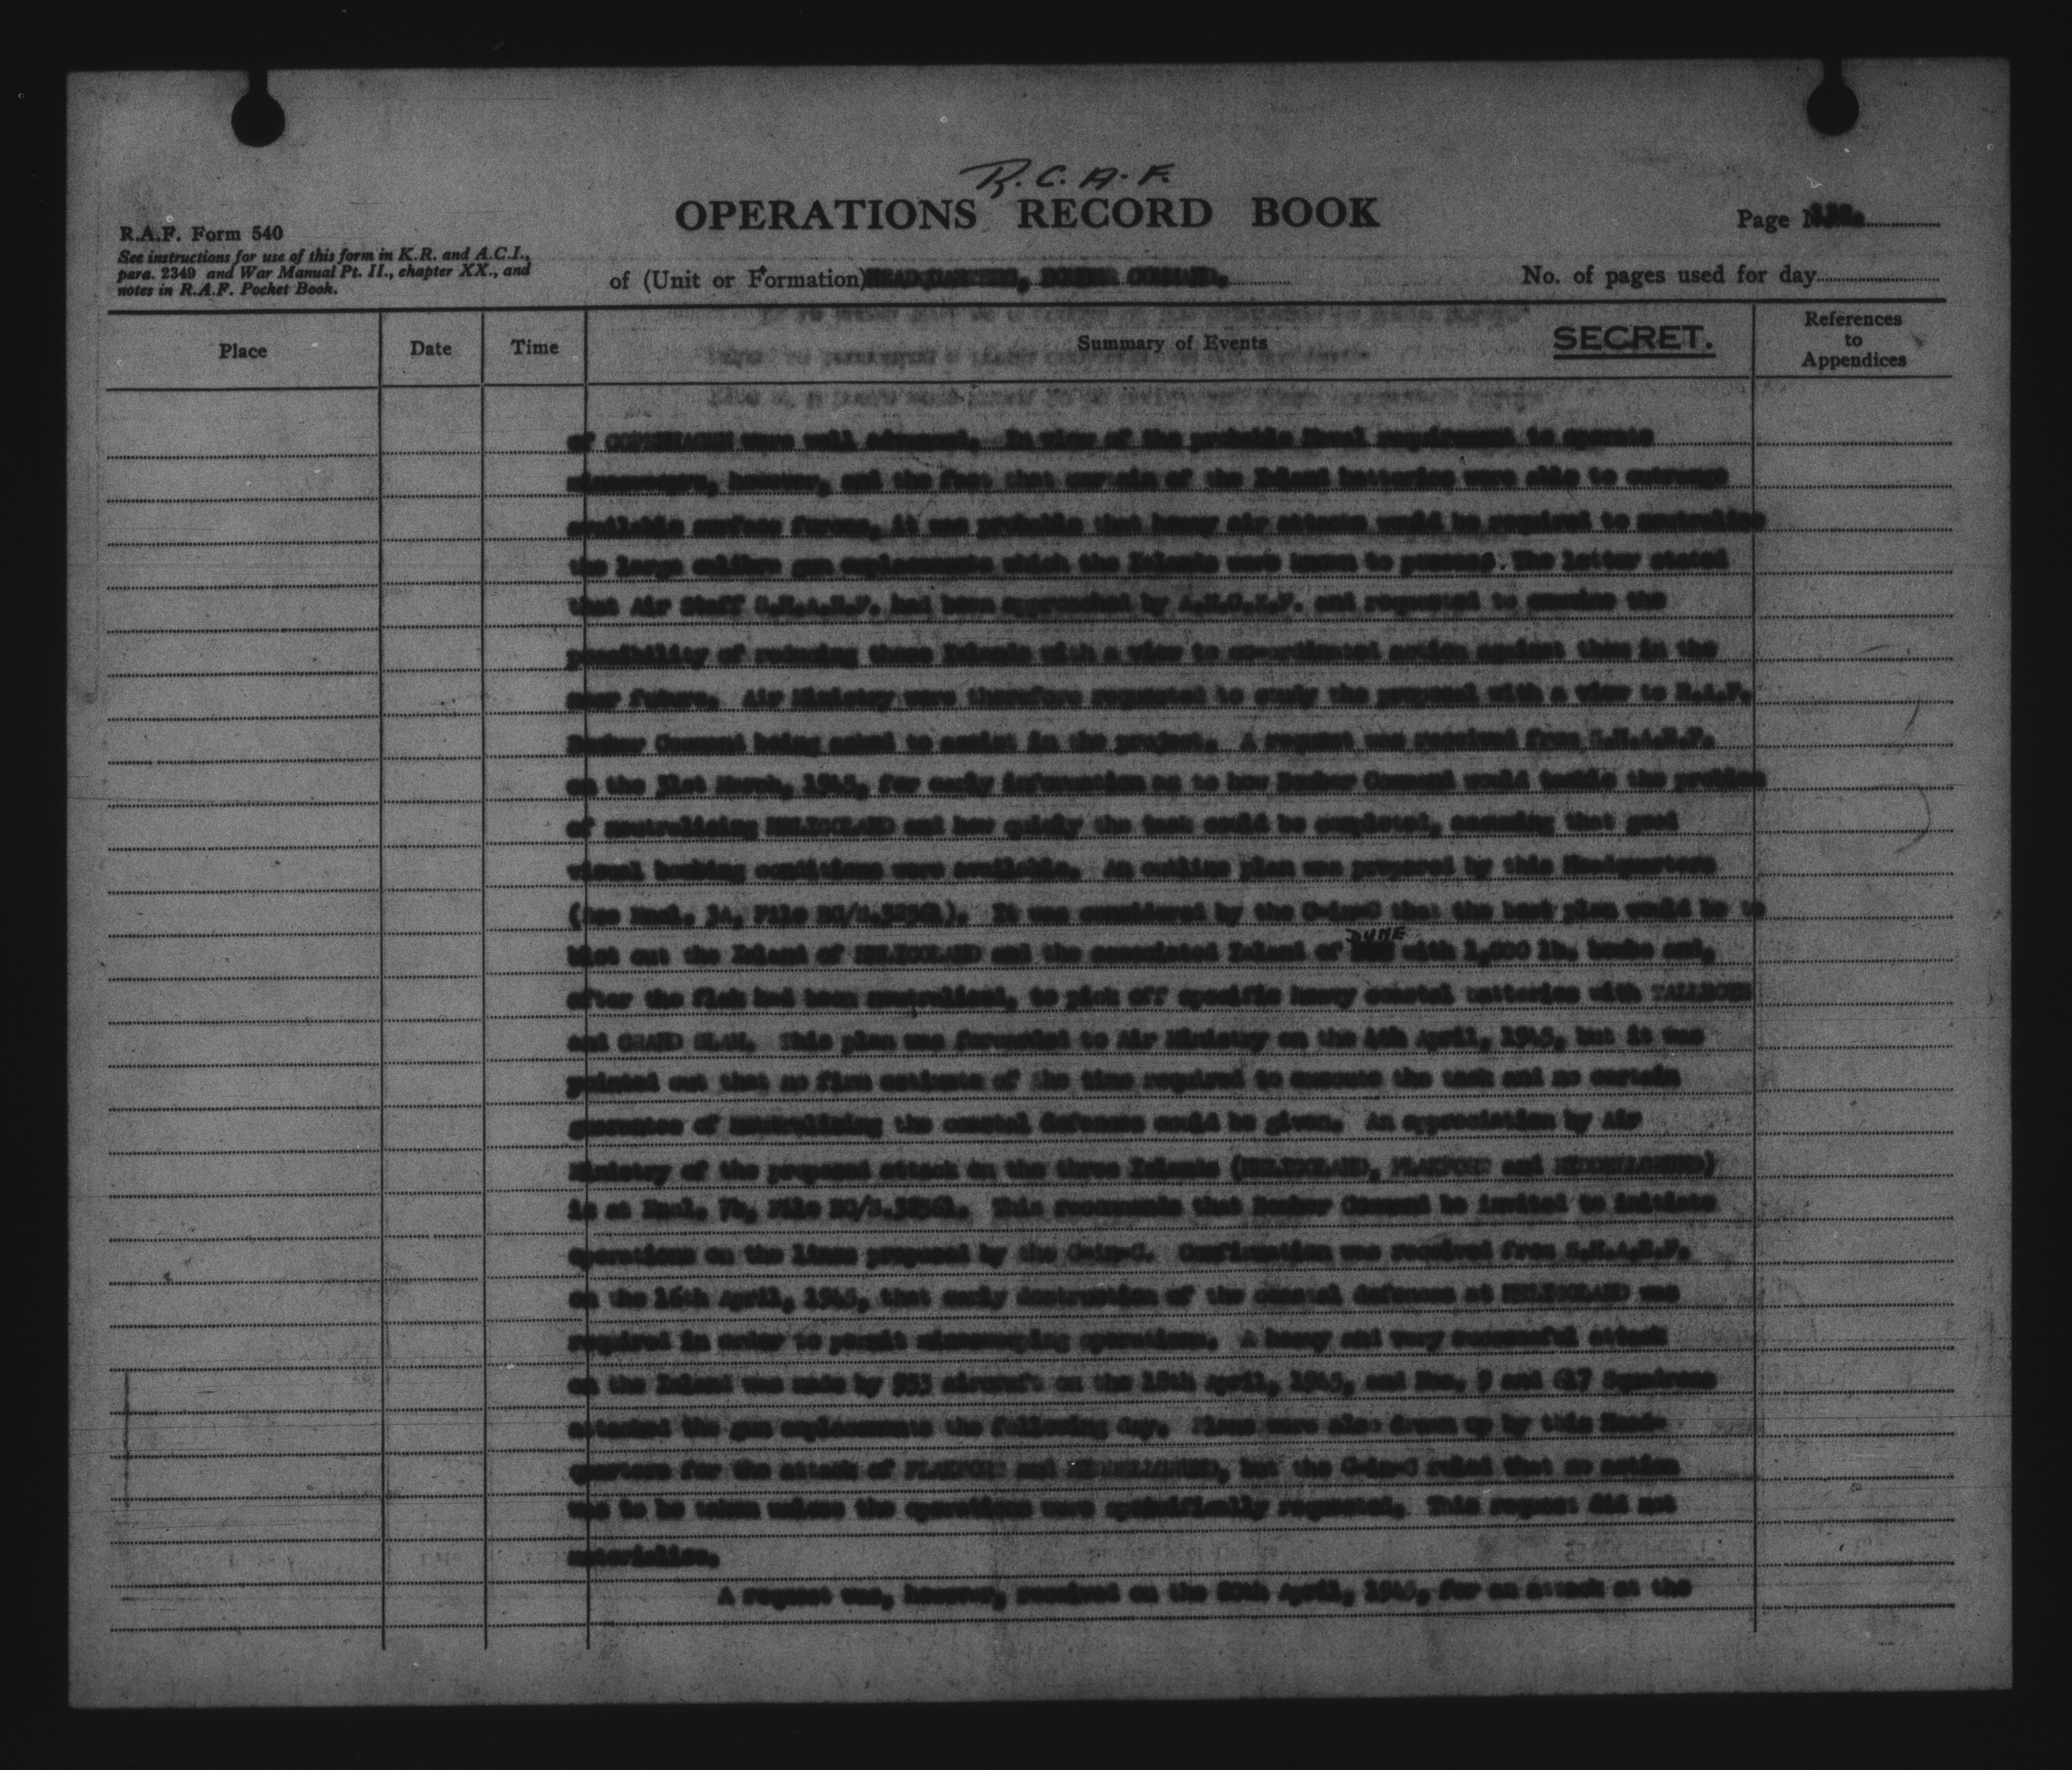 R.C.A.F.
OPERATIONS RECORD BOOK
Page No.
R.A.F. Form 540
See instructions for use of this form in K.R. and A.C.I.,
para. 2349 and War Manual Pt. II., chapter XX., and
notes in R.A.F. Pocket Book.
of (Unit or Formation) HEADQUARTERS, BOMBER COMMAND.
No. of pages used for day
Place Date Time Summary of Events SECRET. References to Appendices
of COPENHAGEN were well advanced. In view of the probable Naval requirement to operate
minesweepers, however, and the fact that certain of the Island batteries were able to outrange
available surface forces, it was probable that heavy air attacks would be required to neutralise
the large calibre gun emplacements which the Islands were known to possess. The letter stated
that Air Staff S.H.A.E.F. had been approached by A.N.C.X.F. and requested to examine the
possibility of reducing these Islands with a view to co-ordinated action against them in the
near future. Air Ministry were therefore requested to study the proposal with a view to R.A.F.
Bomber Command being asked to assist in the project. A request was received from S.H.A.E.F.
on the 31st March, 1945, for early information as to how Bomber Command would tackle the problem
of neutralising HELIGOLAND and how quickly the task could be completed, assuming that good
visual bombing conditions were available. An outline plan was prepared by this Headquarters
(See Encl. 3A, File BC/S.32561). It was considered by the C-in-C that the best plan would be to
blot out the Island of HELIGOLAND and the associated Island of DUNE with 1,000 lb. bombs and,
after the flak had been neutralised, to pick off specific heavy coastal batteries with TALLBOYS
and GRAND SLAM. This plan was forwarded to Air Ministry on the 4th April, 1945, but it was
pointed out that no firm estimate of the time required to execute the task and no certain
guarantee of neutralising the coastal defences could be given. An appreciation by Air
Ministry of the proposed attack on the three Islands (HELIGOLAND, FLAKFORT and MIDDELGRUND)
is at Encl. 7B, File BC/S.32561. This recommends that Bomber Command be invited to initiate
operations on the lines proposed by the C-in-C. Confirmation was received from S.H.A.E.F.
on the 16th April, 1945, that early destruction of the coastal defences at HELIGOLAND was
required in order to permit minesweeping operations. A heavy and very successful attack
on the Island was made by 953 aircraft on the 18th April, 1945, and Nos. 9 and 617 Squadrons
attacked the gun emplacements the following day. Plans were also drawn up by this Head-
quarters for the attack of FLAKFORT and MIDDELGRUND, but the C-in-C ruled that no action
was to be taken unless the operations were specifically requested. This request did not
materialise.
A request was, however, received on the 20th April, 1945, for an attack at the